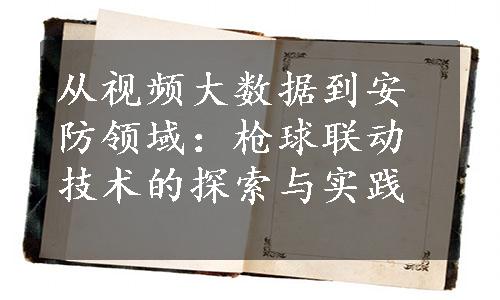 从视频大数据到安
防领域：枪球联动
技术的探索与实践